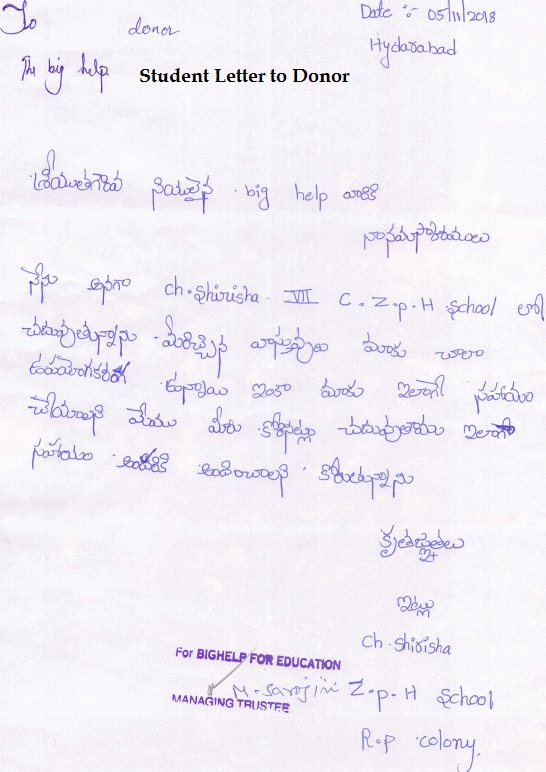 To
donor
Date :- 05/11/2018
Hyderabad
The big help.
Student Letter to Donor
big help వారికి
నా నమస్కారములు
నేను అనగా ch. Shirisha. VII C. Z.p.H School లో
చదువుతున్నాను. మీరిచ్చిన వస్తువులు మాకు చాలా
ఉపయోగకరంగా ఉన్నాయి ఇంకా మాకు ఇలాగే సహాయం
చేయాలని మేము మీరు కోరినట్లు చదువుతాము ఇలాగే
సహాయం అందించాలని కోరుతున్నాను
కృతజ్ఞతలు
ఇట్లు
Ch. Shirisha
For BIGHELP FOR EDUCATION
M. Sarojini Z.p.H School
MANAGING TRUSTEE
R.p colony.